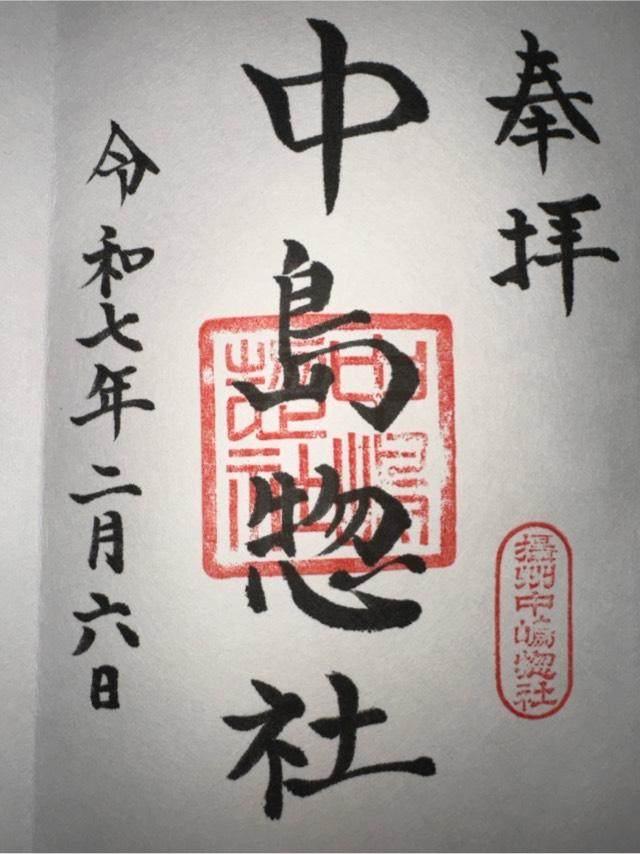 奉拝
中島惣社
摂州中嶋惣社
令和七年二月六日